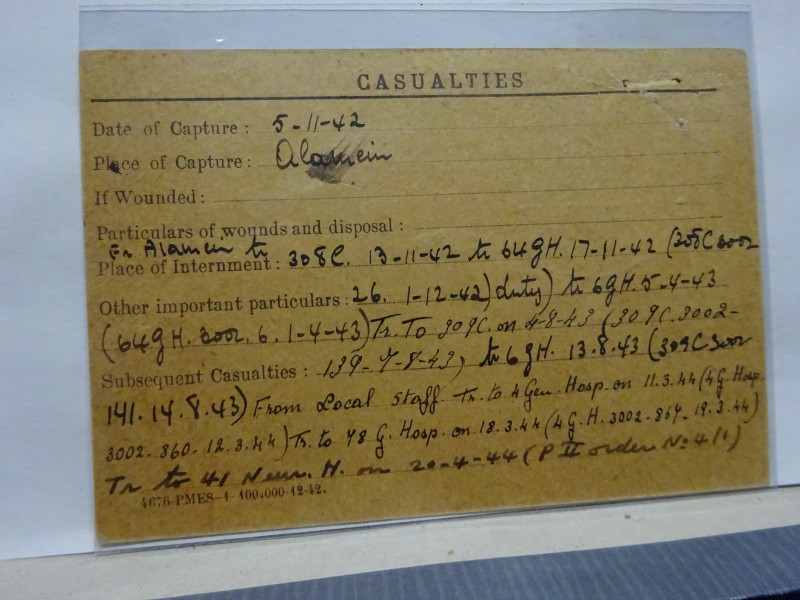 CASUALTIES
Date of Capture : 5-11-42
Place of Capture : Alamein
If Wounded :
Particulars of wounds and disposal :
Fr Alamein to
Place of Internment : 308C. 13-11-42 to 64gH. 17-11-42 (308C 3002
Other important particulars : 26. 1-12-42) (duty) to 6gH. 5-4-43
(64gH. 3002. 6. 1-4-43) Tr. To 309C. on 4-8-43 (309C. 3002-
Subsequent Casualties : 139-7-8-43) to 6gH. 13.8.43 (309C 3002
141. 14.8.43) From Local Staff Tr. to 4 Gen. Hosp. on 11.3.44 (4G. Hosp.
3002. 860. 12.3.44) Tr. to 78 G. Hosp. on 18.3.44 (4G.H. 3002-867-19.3.44)
Tr to 41 Neur. H. on 20-4-44 (P II order No 41)
4676-PMES-1-100.000-12-42.